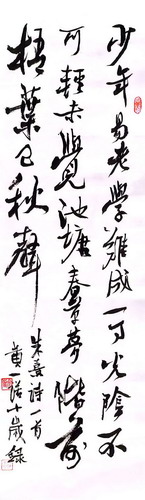 少年易老學難成一寸光陰不
可輕未覺池塘春草夢階前
梧葉已秋聲
朱熹詩一首
黄一诺十歲錄